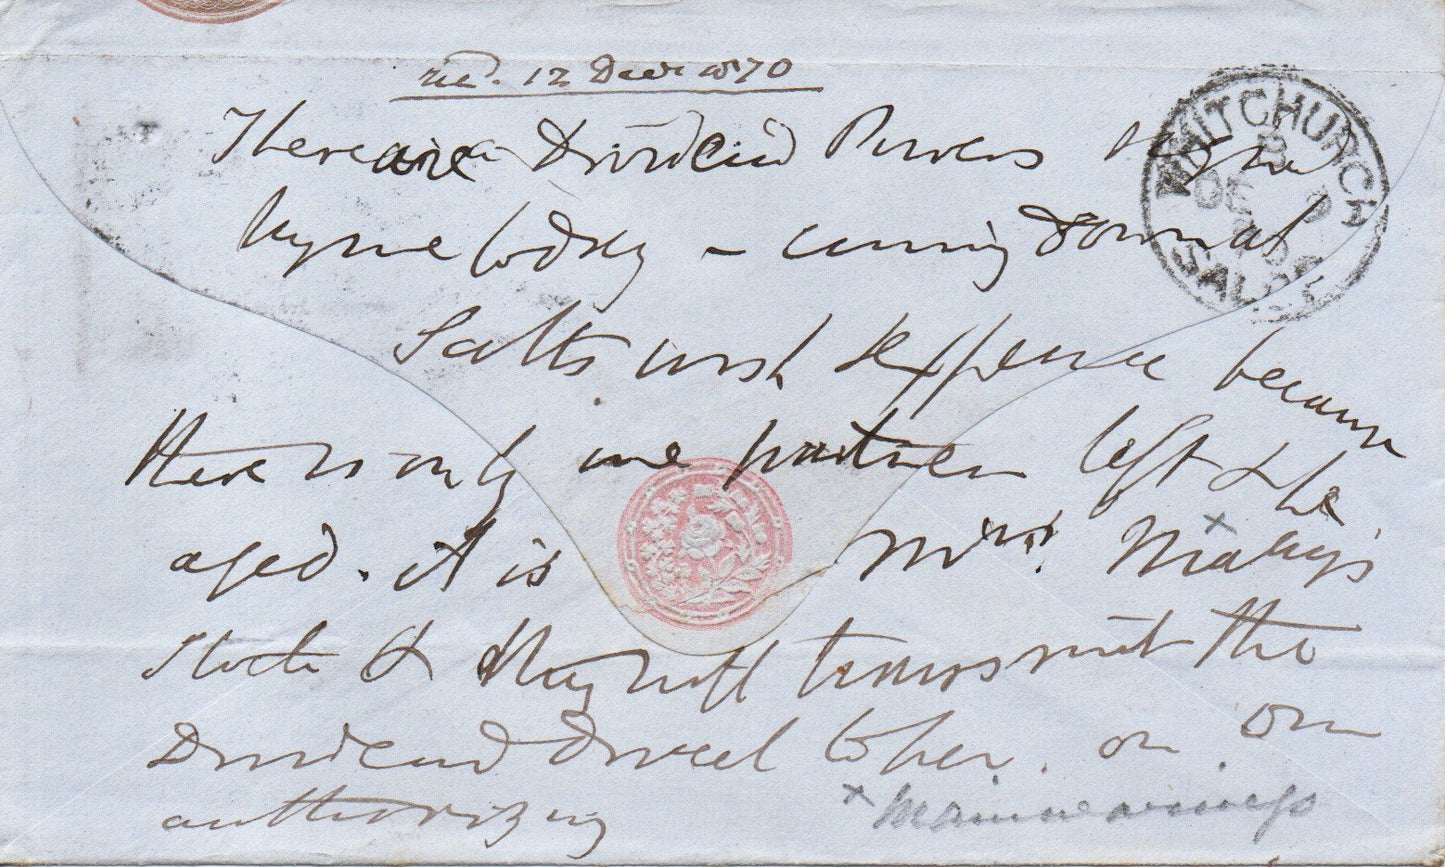 recd. 12 Decr 1870
There are Dividend Powers
today - coming
Salts wish because
there is only one partner left & he
aged. It is Miss Mary's ×
Stock & they will transmit the
Dividend direct to her on our
authorizing
× Mainwarings
WHITCHURCH
B
DE 9
70
SALOP